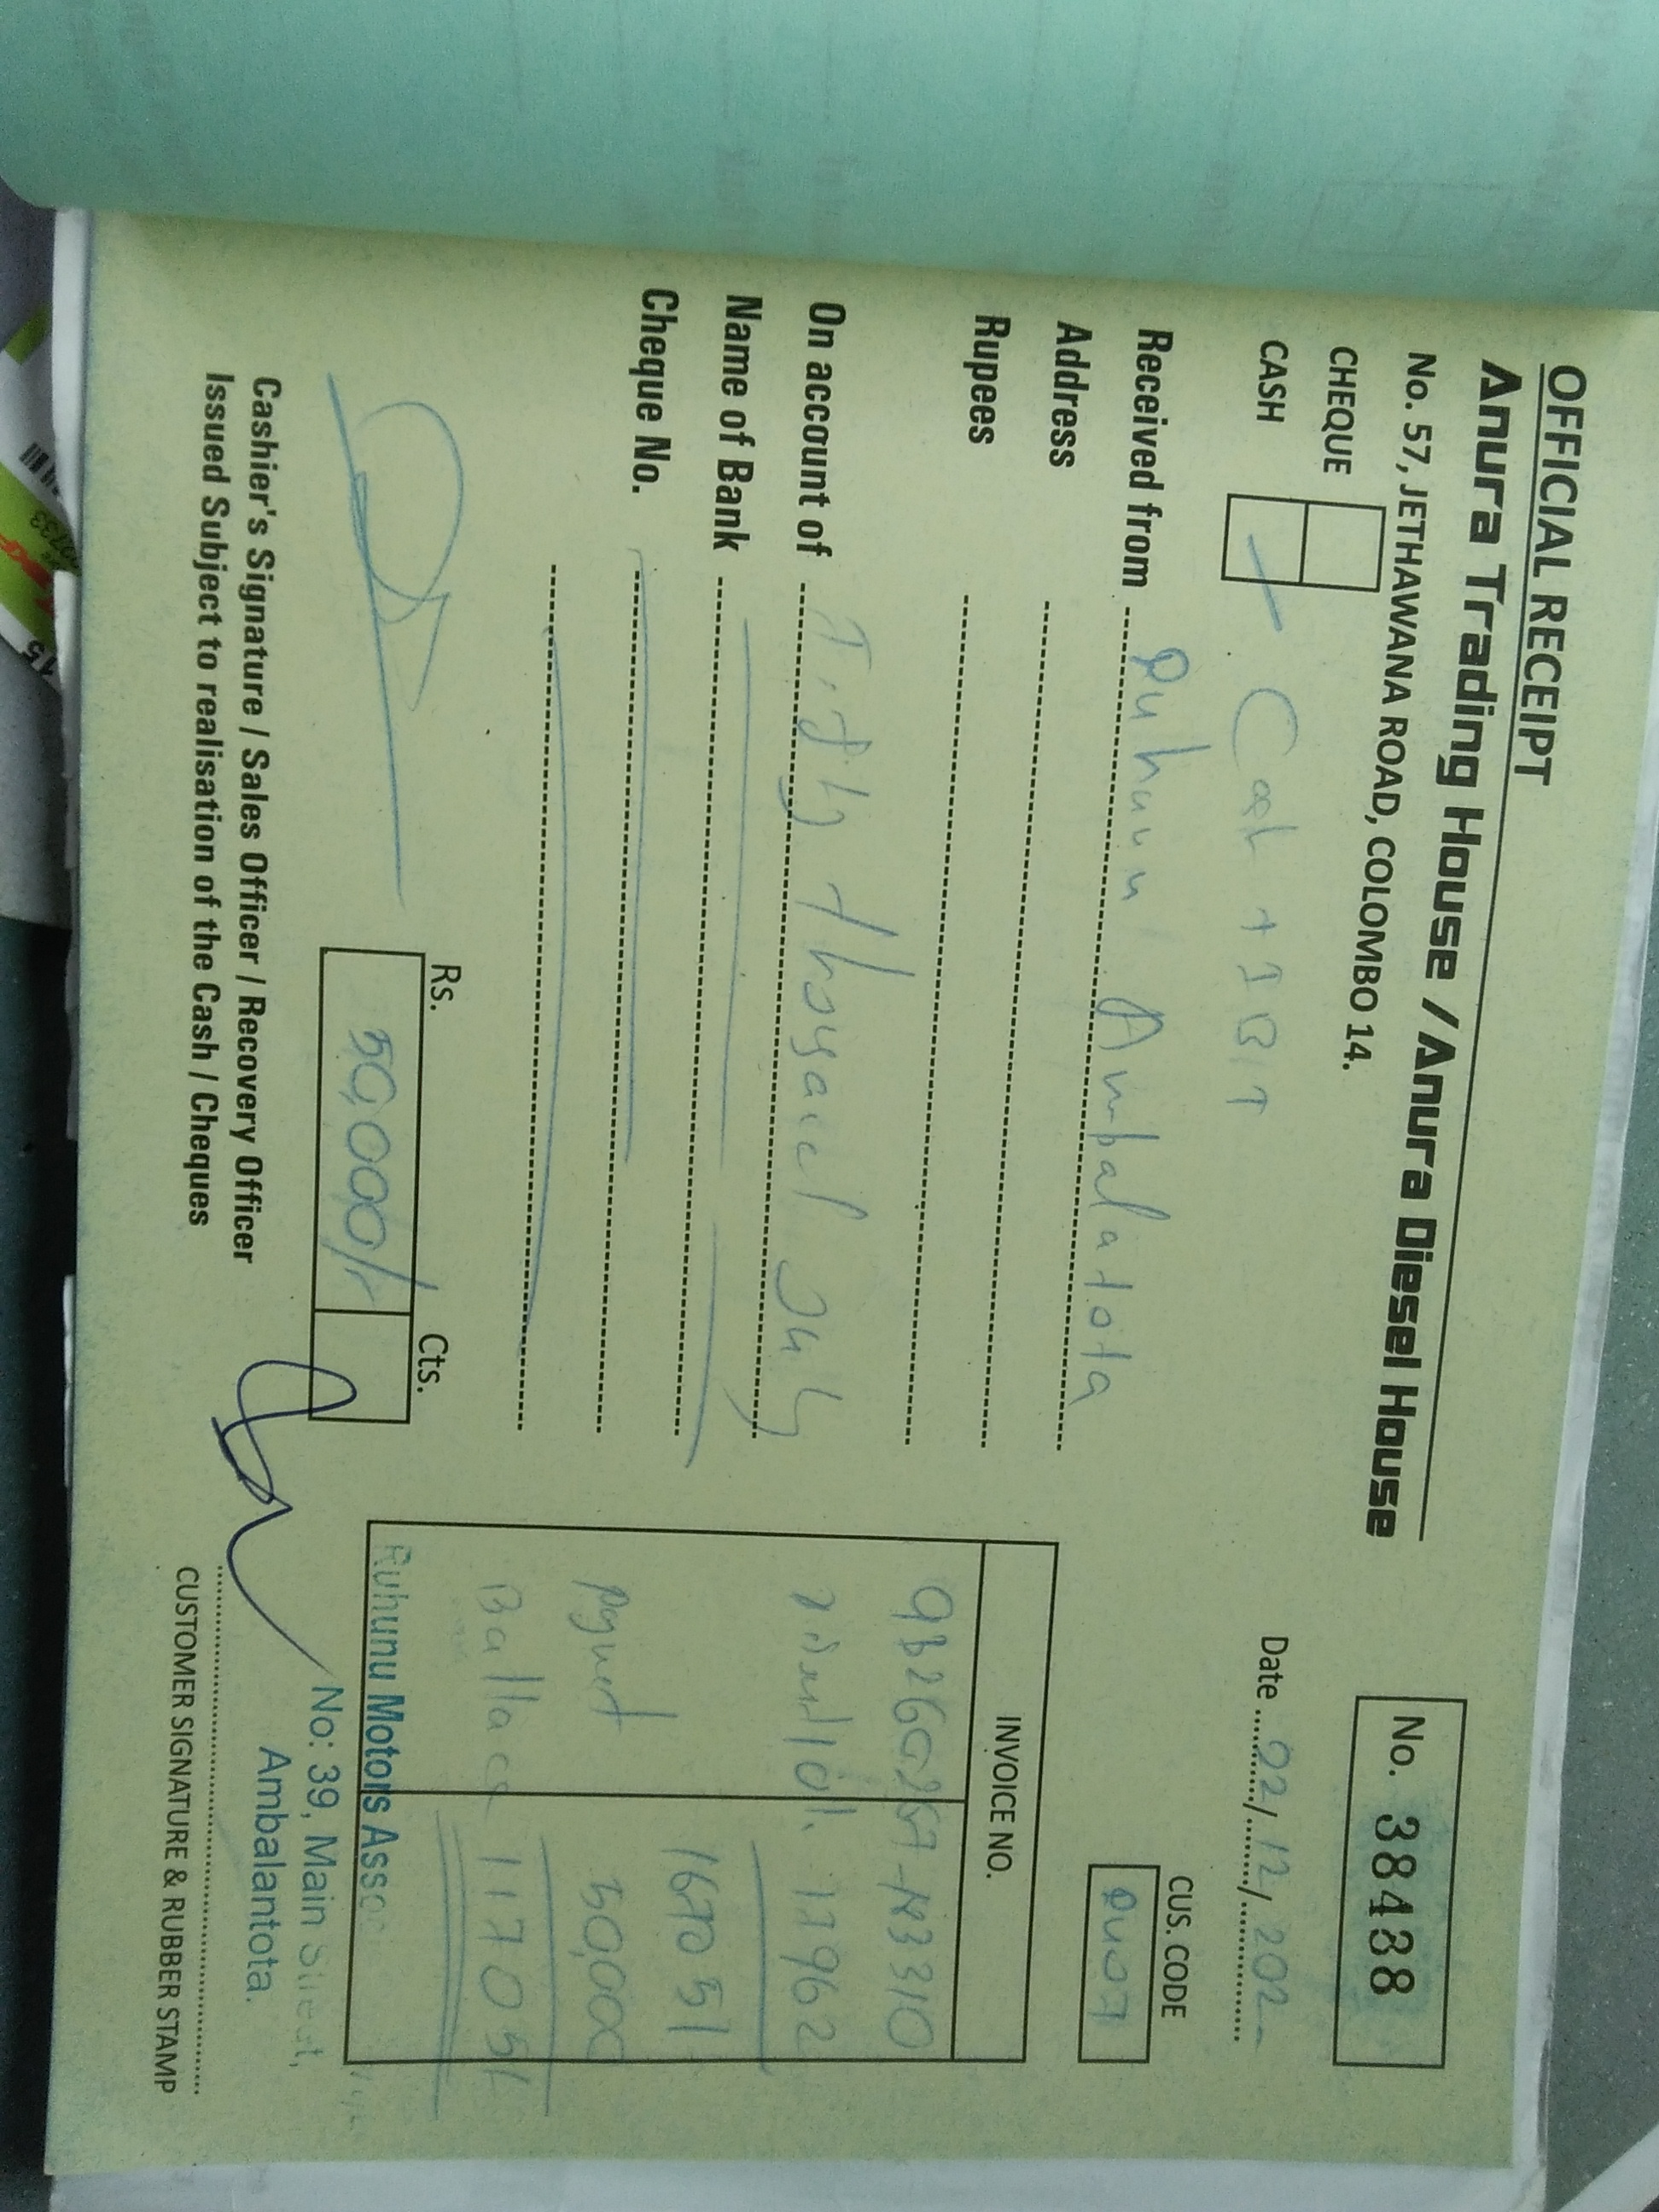 OFFICIAL RECEIPT
Anura Trading House / Anura Diesel House
No. 57, JETHAWANA ROAD, COLOMBO 14.
No. 38438
CHEQUE
CASH
Date 02/12/202
CUS. CODE
Received from Ruhunu Ambalatota
Address
Rupees
On account of Fifty thousand only
Name of Bank
Cheque No.
INVOICE NO.
11962
167051
50,000
117051
Rs. Cts.
50,000/-
Ruhunu Motors Asso
No: 39, Main Street,
Ambalantota.
Cashier's Signature / Sales Officer / Recovery Officer
Issued Subject to realisation of the Cash / Cheques
CUSTOMER SIGNATURE & RUBBER STAMP